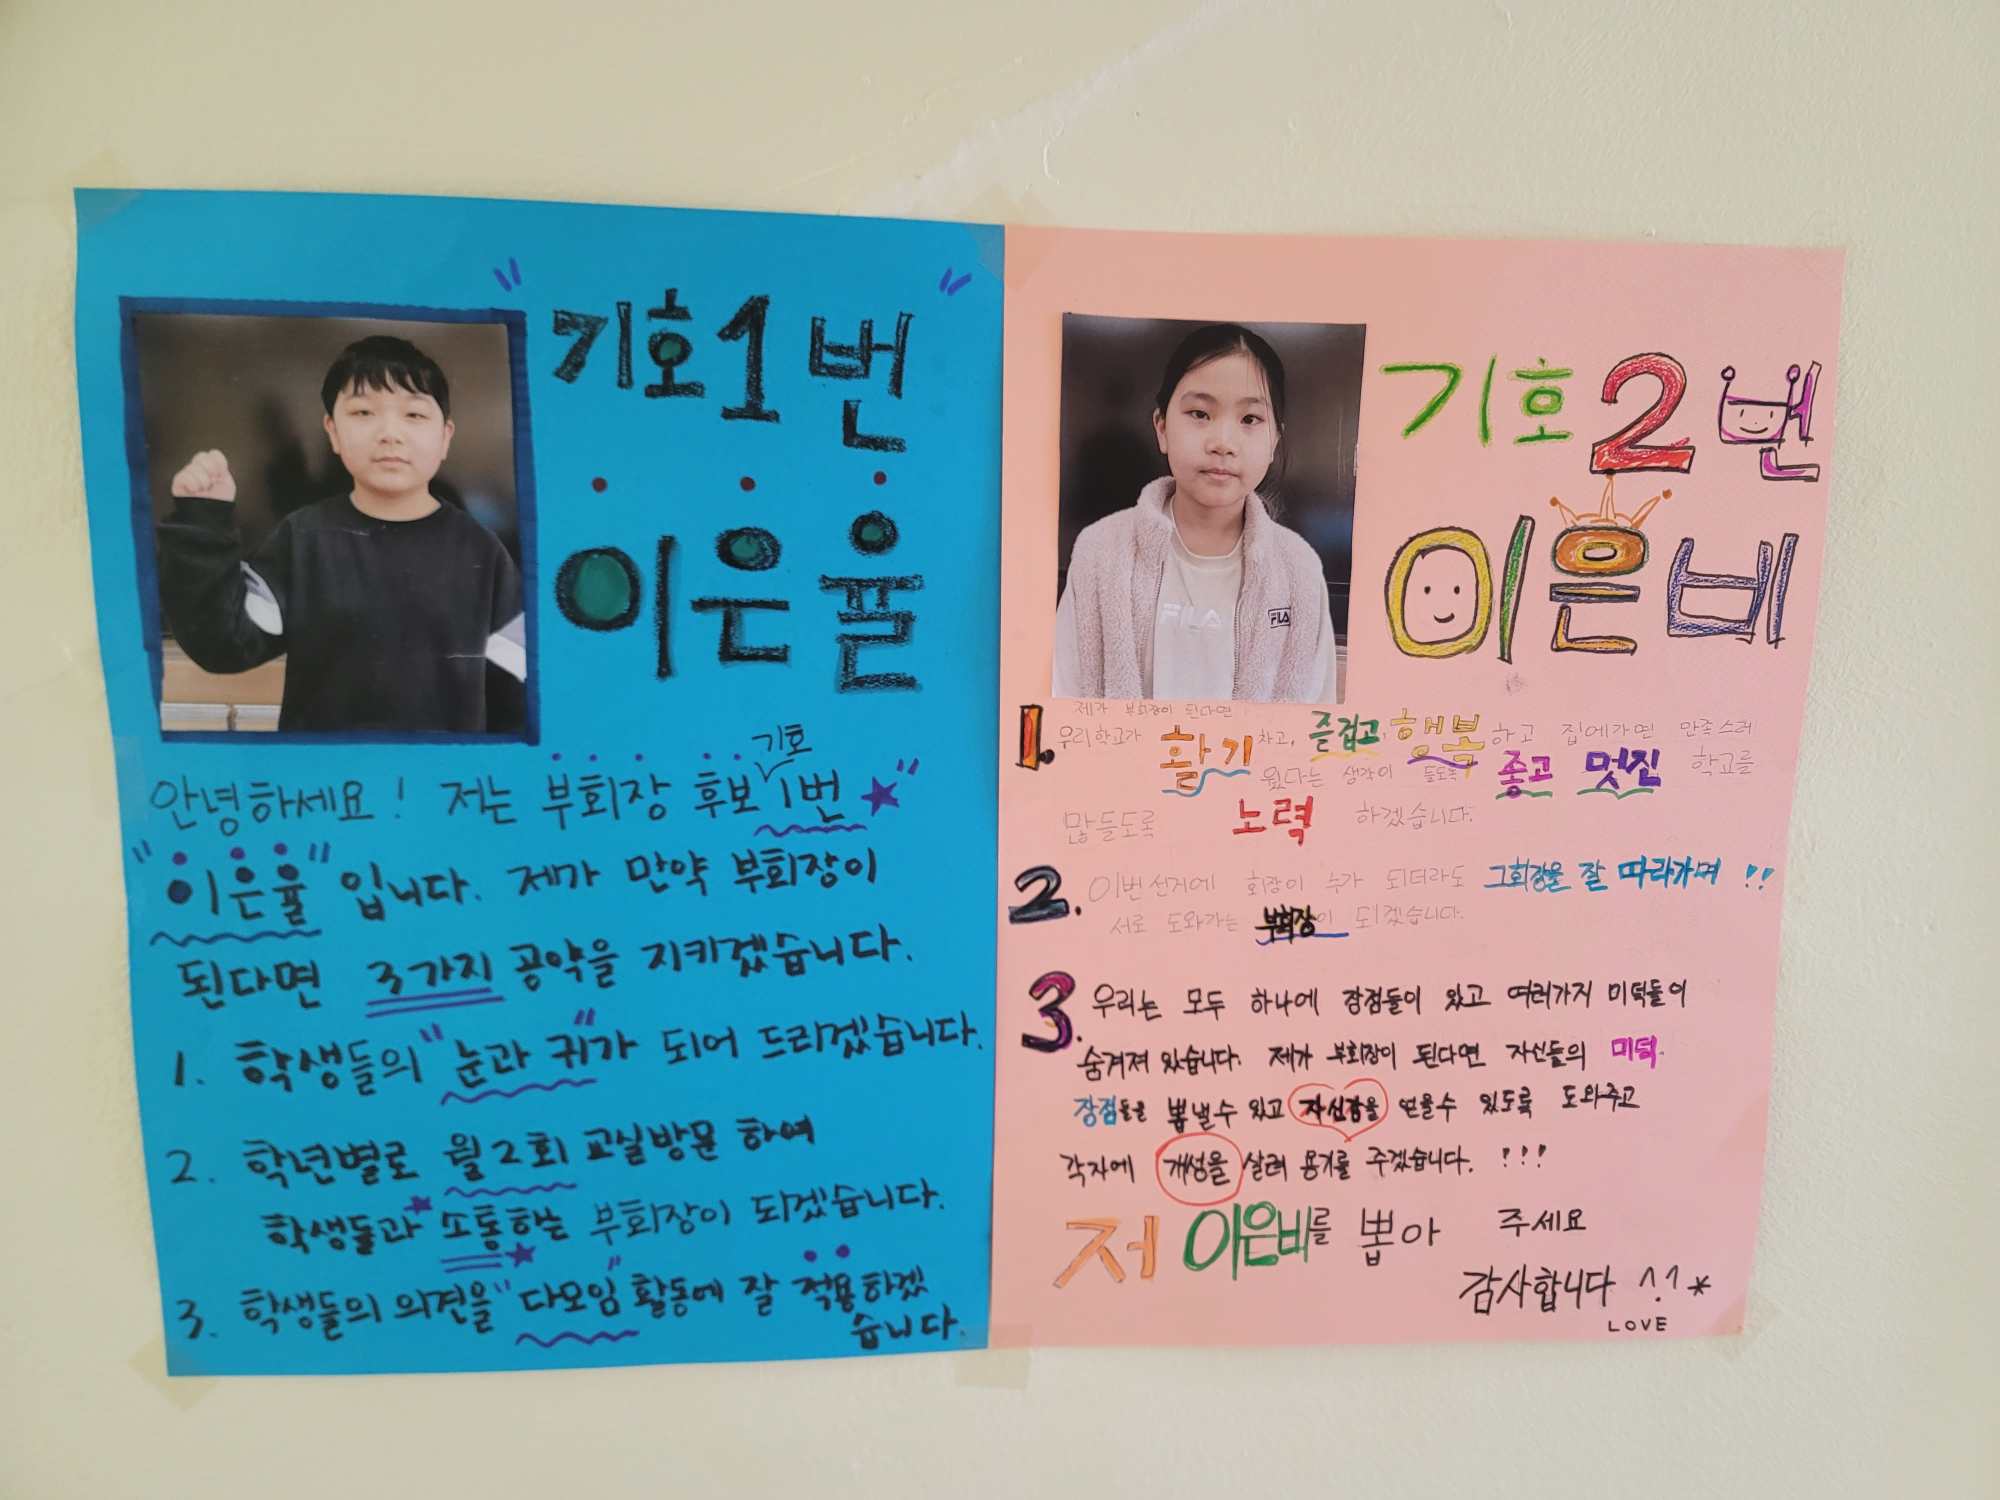 "기호1번"
이은율
기호
안녕하세요! 저는 부회장 후보 1번"
"이은율" 입니다. 제가 만약 부회장이
된다면 3가지 공약을 지키겠습니다.
1. 학생들의 "눈과 귀"가 되어 드리겠습니다.
2. 학년별로 월2회 교실방문 하여
학생들과 소통하는 부회장이 되겠습니다.
3. 학생들의 의견을 "다모임" 활동에 잘 적용하겠
습니다.
기호2번
이은비
FILA
FILA
제가 부회장이 된다면
1. 우리학교가 활기차고, 즐겁고, 행복하고 집에가면 만족스러
웠다는 생각이 들도록 좋고 멋진 학교를
많들도록 노력 하겠습니다.
2. 이번선거에 회장이 누가 되더라도 그회장을 잘 따라가며 !!
서로 도와가는 부회장이 되겠습니다.
3. 우리는 모두 하나에 장점들이 있고 여러가지 미덕들이
숨겨져 있습니다. 제가 부회장이 된다면 자신들의 미덕.
장점들을 뽐낼수 있고 자신감을 얻을수 있도록 도와주고
각자에 개성을 살려 용기를 주겠습니다. !!!
저 이은비를 뽑아 주세요
감사합니다 ^.^*
LOVE